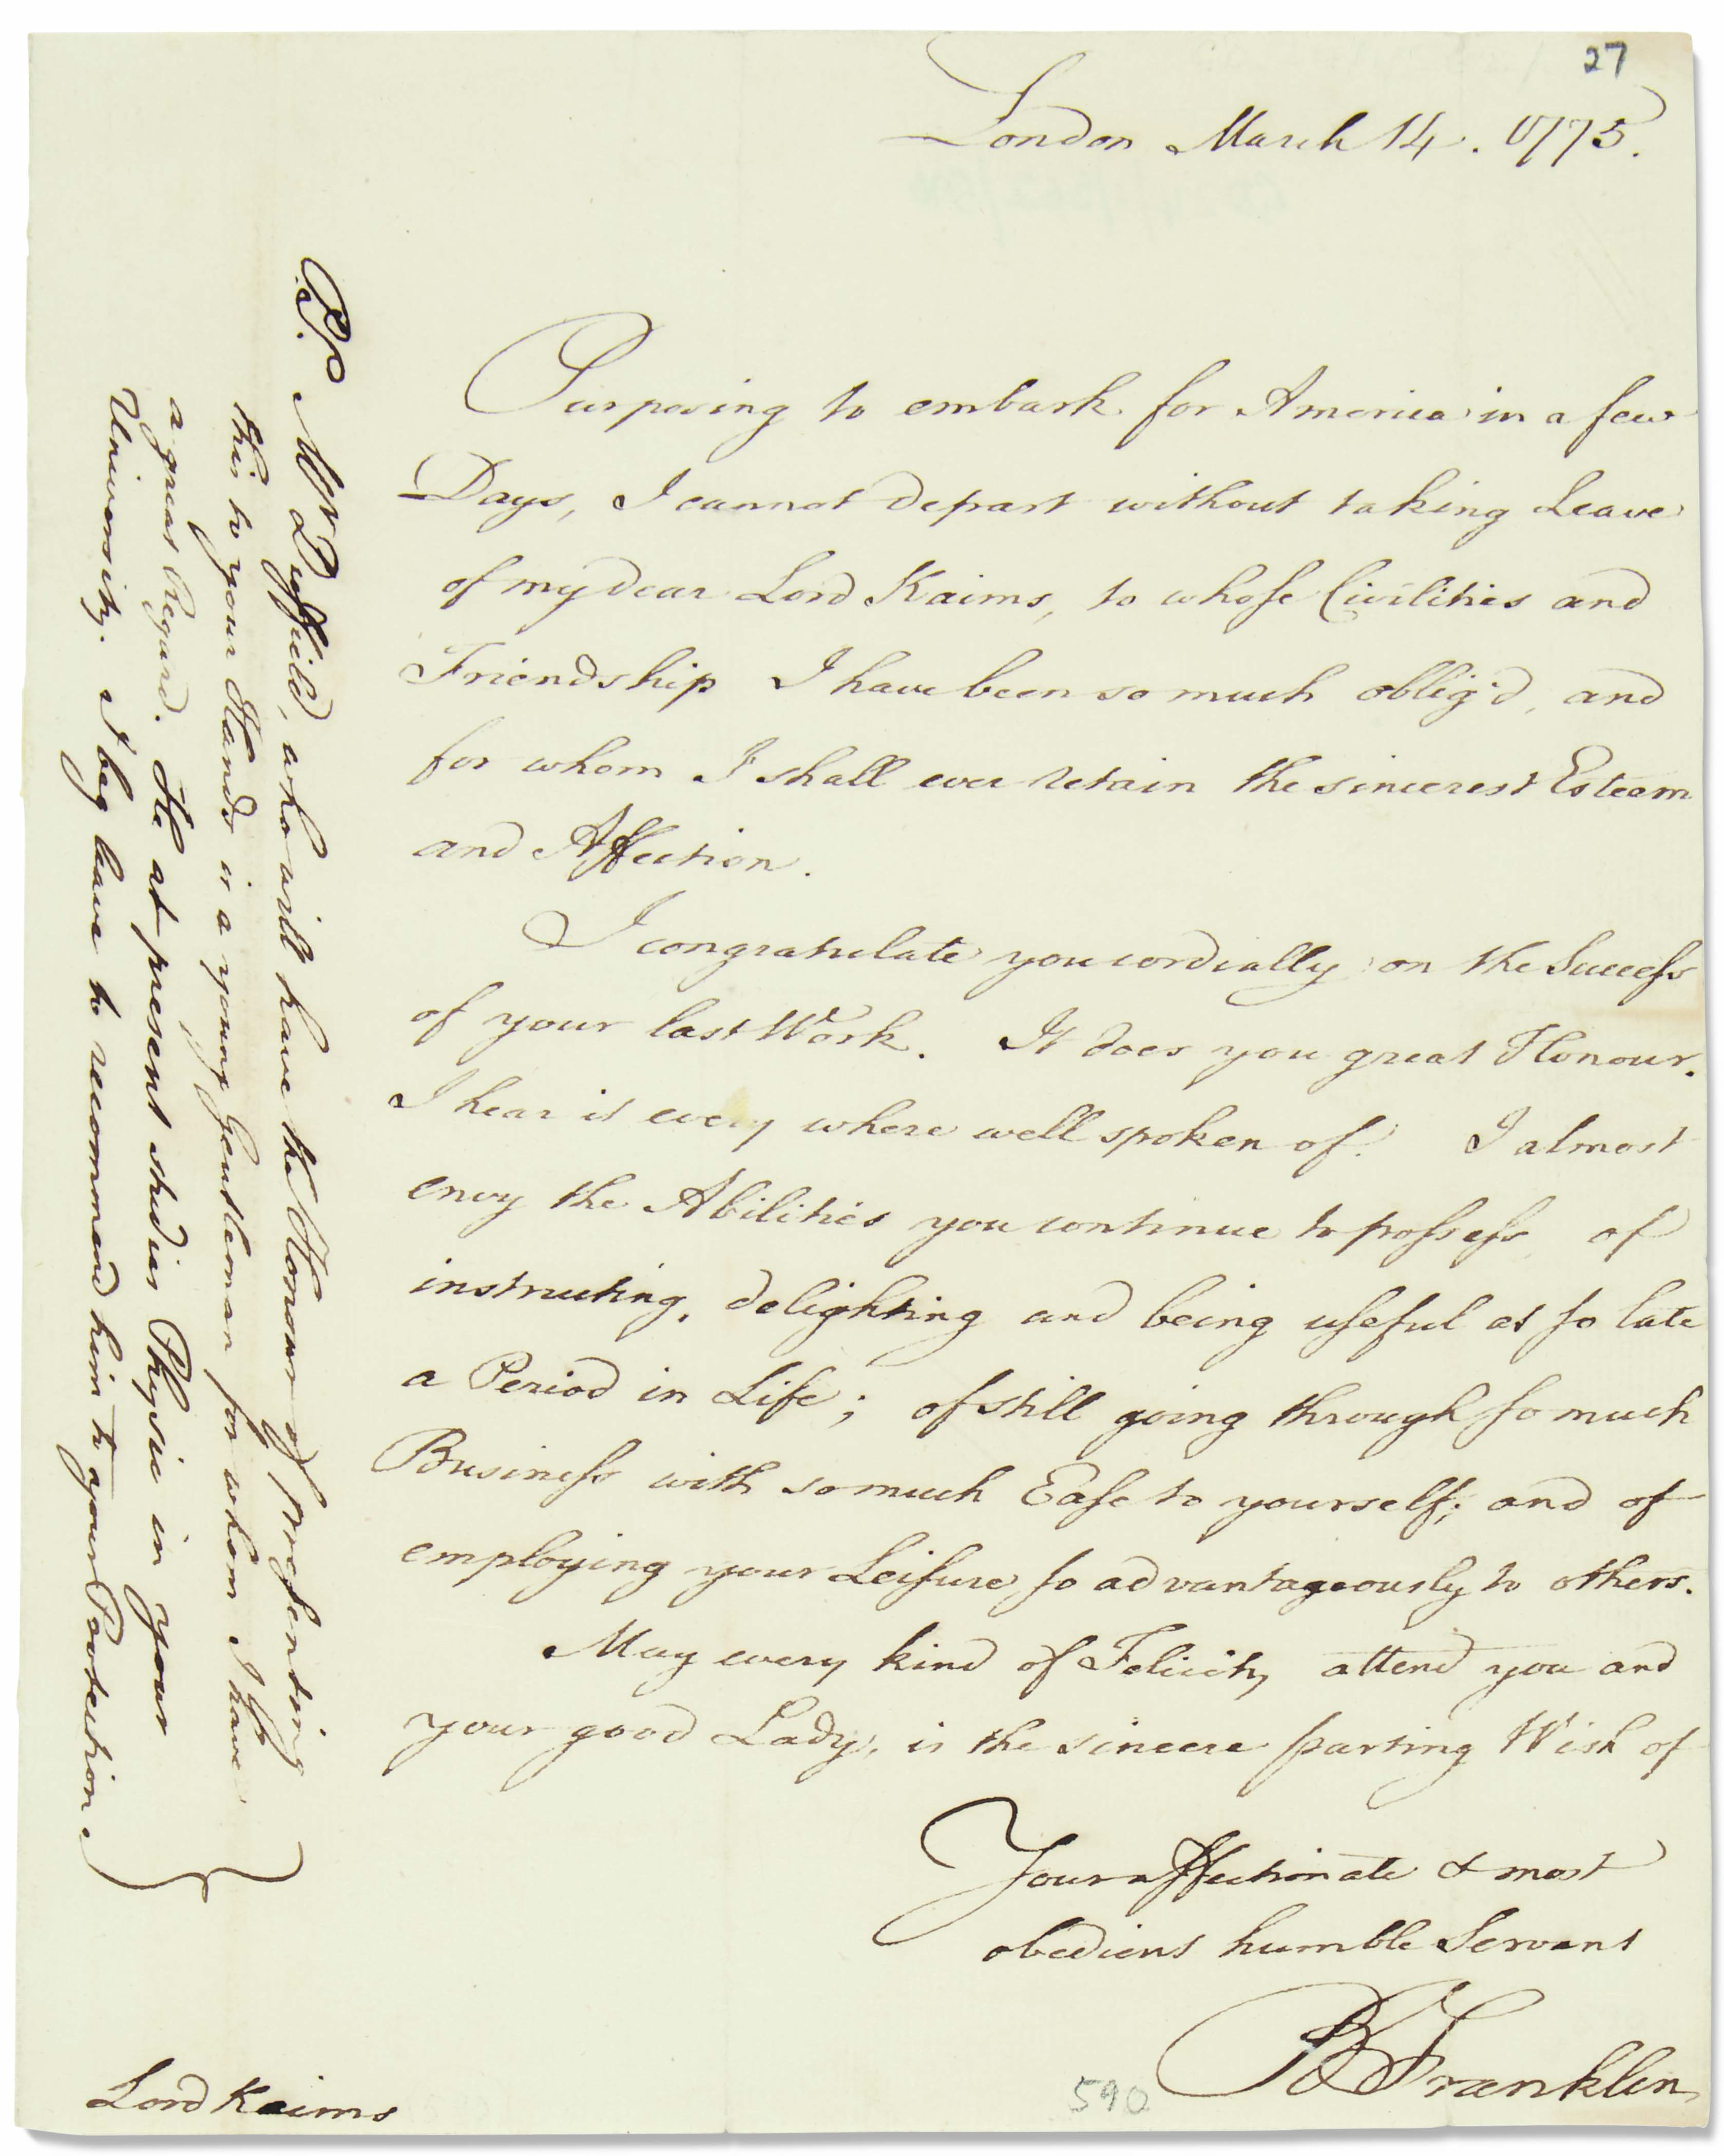 27
London March 14. 1775.
Purposing to embark for America in a few
Days, I cannot depart without taking Leave
of my dear Lord Kaims, to whose Civilities and
Friendship I have been so much oblig'd, and
for whom I shall ever retain the sincerest Esteem
and Affection.
I congratulate you cordially on the Success
of your last Work. It does you great Honour.
I hear it every where well spoken of. I almost
envy the Abilities you continue to possess, of
instructing, delighting and being useful at so late
a Period in Life; of still going through so much
Business with so much Ease to yourself; and of
employing your Leisure so advantageously to others.
May every kind of Felicity attend you and
your good Lady, is the sincere parting Wish of
Your affectionate & most
obedient humble Servant
B Franklin
590
Lord Kaims
P.S. Mr Duffield, who will have the Honour of presenting
this to your Hands is a young Gentleman for whom I have
a great Regard. He at present studies Physic in your
University. I beg leave to recommend him to your Protection.